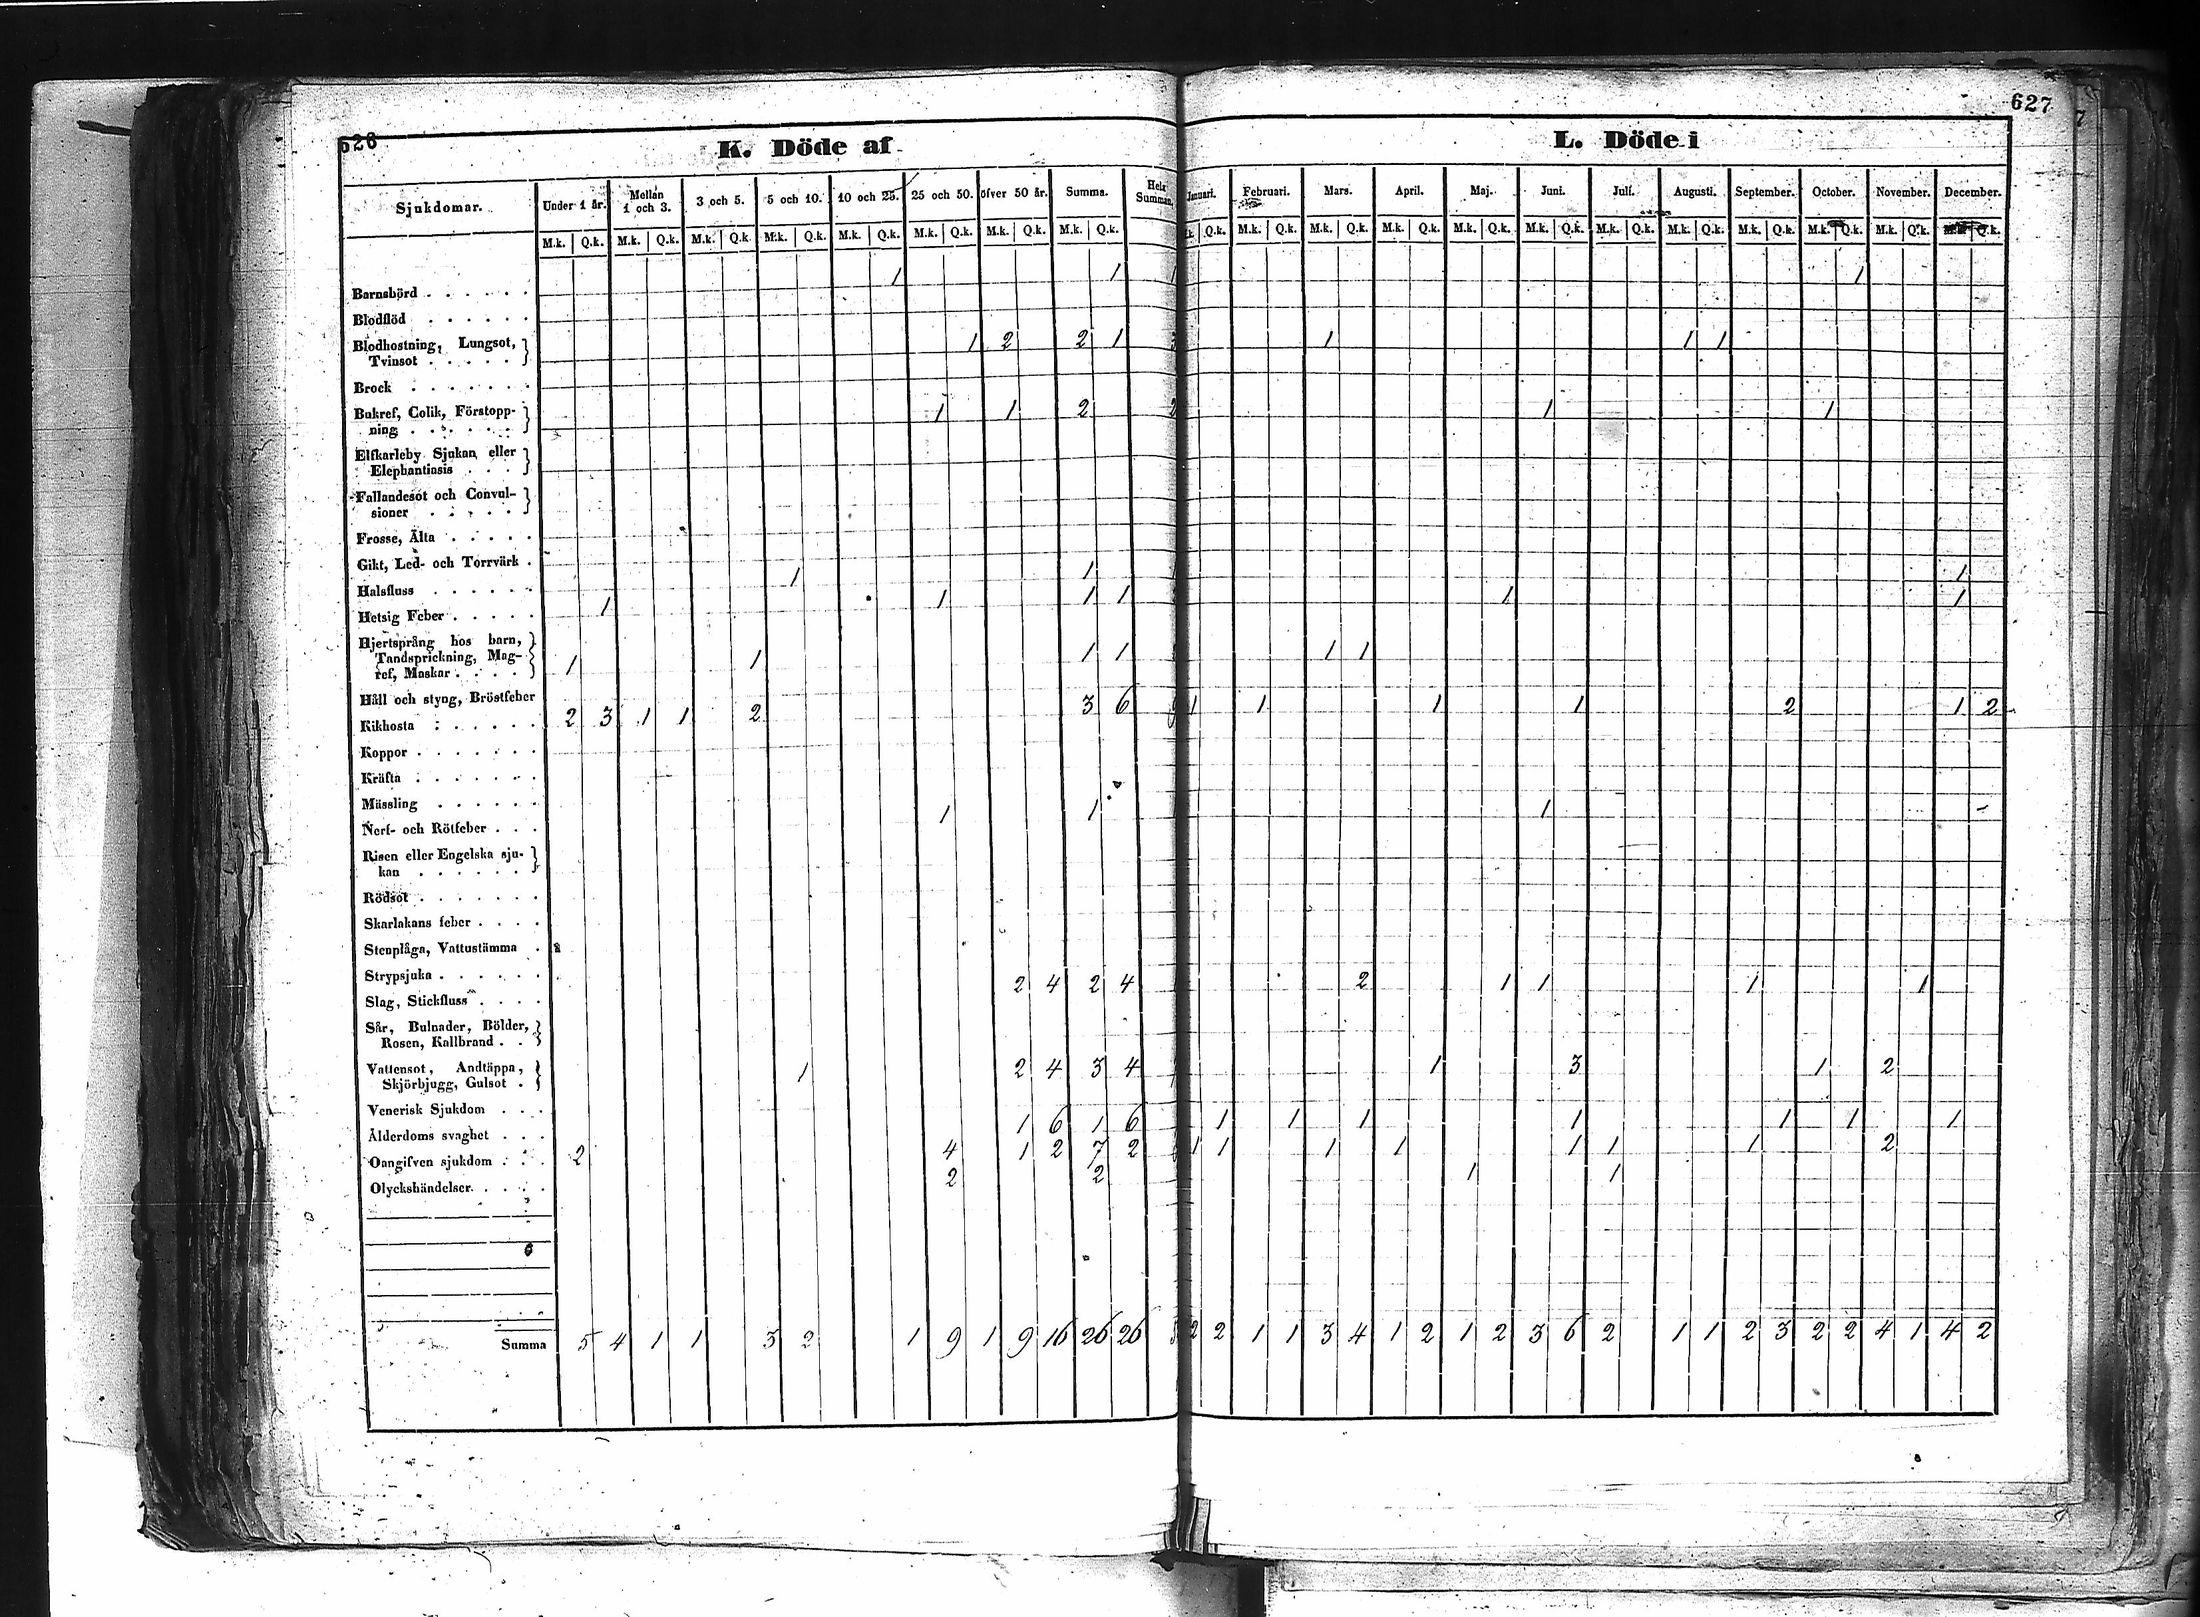 626
627
K. Döde af
L. Döde i
Sjukdomar. Under 1 år. Mellan 1 och 3. 3 och 5. 5 och 10. 10 och 25. 25 och 50. öfver 50 år. Summa. Hela Summan. Januari. Februari. Mars. April. Maj. Juni. Juli. Augusti. September. October. November. December.
M.k. Q.k. M.k. Q.k. M.k. Q.k. M.k. Q.k. M.k. Q.k. M.k. Q.k. M.k. Q.k. M.k. Q.k. M.k. Q.k. M.k. Q.k. M.k. Q.k. M.k. Q.k. M.k. Q.k. M.k. Q.k. M.k. Q.k. M.k. Q.k. M.k. Q.k. M.k. Q.k. M.k. Q.k. M.k. Q.k.
Barnsbörd 1 1 1 1
Blodflöd
Blodhostning, Lungsot,
Tvinsot 1 2 2 1 3 1 1 1
Brock
Bukref, Colik, Förstopp-
ning 1 1 2 2 1 1
Elfkarleby Sjukan eller
Elephantiasis
Fallandesot och Convul-
sioner
Frosse, Älta
Gikt, Led- och Torrvärk
Halsfluss 1 1 1
Hetsig Feber 1 1 1 1 1 1
Hjertsprång hos barn,
Tandsprickning, Mag-
ref, Maskar 1 1 1 1 1 1
Håll och styng, Bröstfeber
Kikhosta 2 3 1 1 2 3 6 9 1 1 1 1 2 1 2
Koppor
Kräfta
Mässling
Nerf- och Rötfeber 1 1 1
Risen eller Engelska sju-
kan
Rödsot
Skarlakans feber
Stenplåga, Vattustämma
Strypsjuka
Slag, Stickfluss 2 4 2 4 2 1 1 1 1
Sår, Bulnader, Bölder,
Rosen, Kallbrand
Vattensot, Andtäppa,
Skjörbjugg, Gulsot 1 2 4 3 4 1 3 1 2
Venerisk Sjukdom
Ålderdoms svaghet 1 6 1 6 1 1 1 1 1 1 1
Oangifven sjukdom 2 4 1 2 7 2 1 1 1 1 1 1 1 2
Olyckshändelser 2 2 1 1
Summa 5 4 1 1 3 2 1 9 1 9 16 26 26 2 2 1 1 3 4 1 2 1 2 3 6 2 1 1 2 3 2 2 4 1 4 2